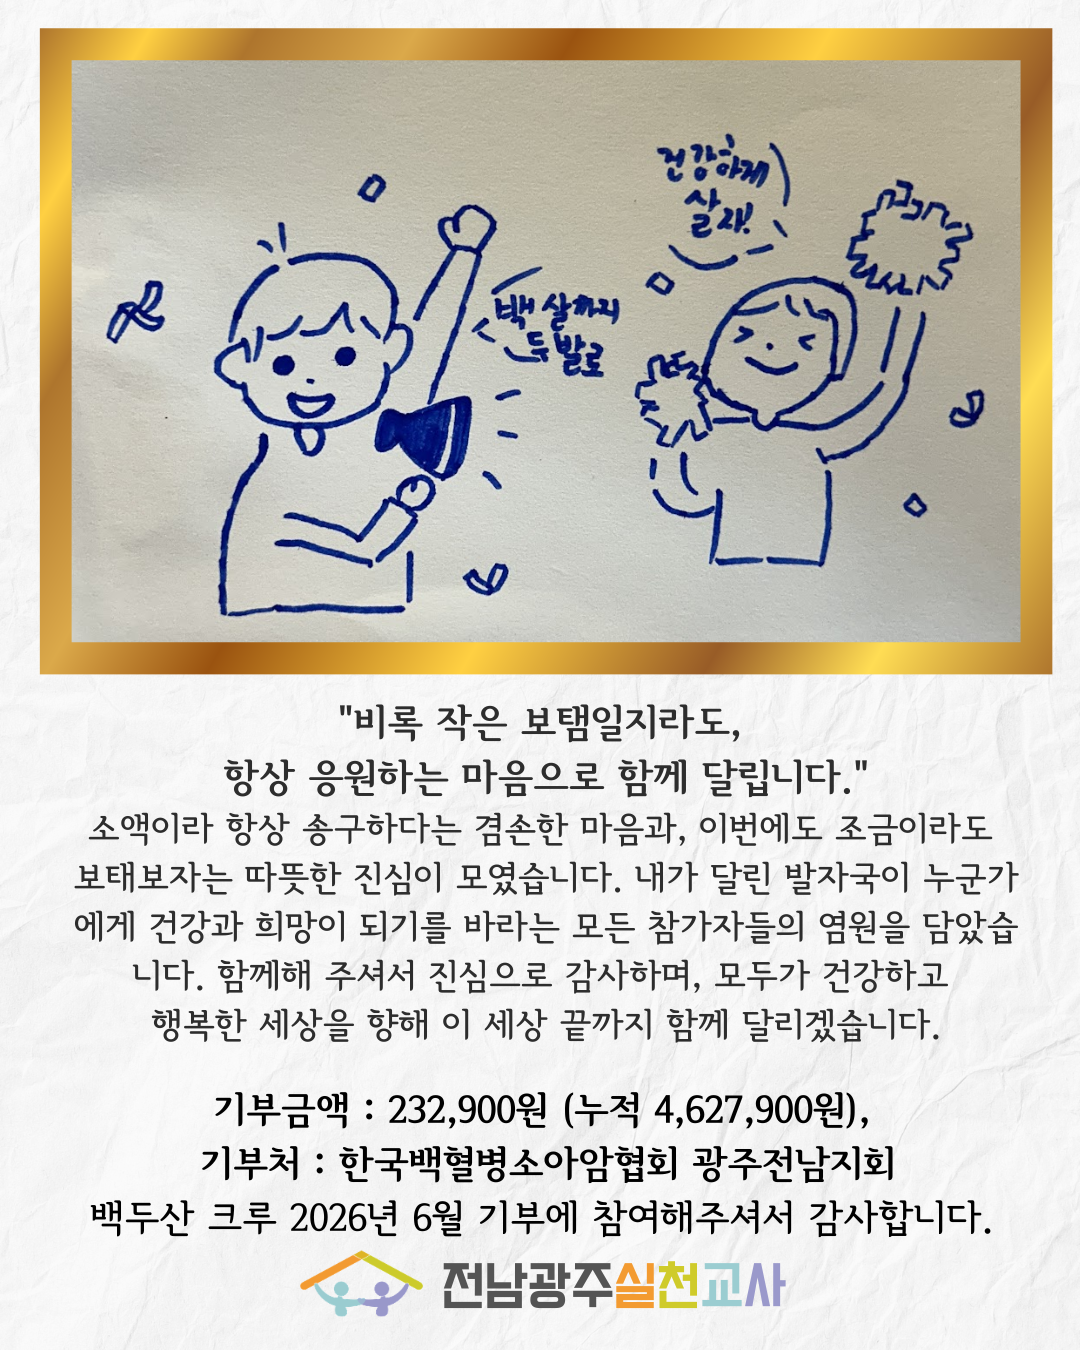 건강하게
살자!
백 살까지
두 발로
"비록 작은 보탬일지라도,
항상 응원하는 마음으로 함께 달립니다."
소액이라 항상 송구하다는 겸손한 마음과, 이번에도 조금이라도
보태보자는 따뜻한 진심이 모였습니다. 내가 달린 발자국이 누군가
에게 건강과 희망이 되기를 바라는 모든 참가자들의 염원을 담았습
니다. 함께해 주셔서 진심으로 감사하며, 모두가 건강하고
행복한 세상을 향해 이 세상 끝까지 함께 달리겠습니다.
기부금액 : 232,900원 (누적 4,627,900원),
기부처 : 한국백혈병소아암협회 광주전남지회
백두산 크루 2026년 6월 기부에 참여해주셔서 감사합니다.
전남광주실천교사